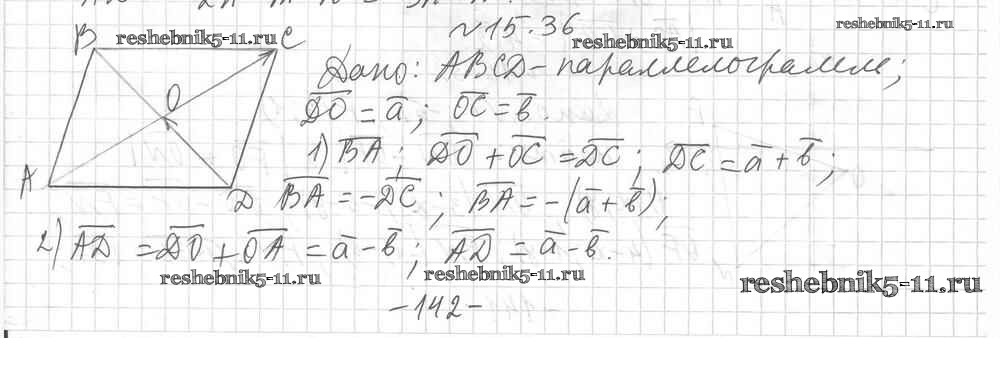 №15.36
reshebnik5-11.ru
reshebnik5-11.ru
reshebnik5-11.ru
B C
O
A D
Дано: ABCD - параллелограмм;
D̅O̅ = a̅; O̅C̅ = b̅.
1) B̅A̅; D̅O̅ + O̅C̅ = D̅C̅; D̅C̅ = a̅ + b̅;
B̅A̅ = -D̅C̅; B̅A̅ = -(a̅ + b̅);
2) A̅D̅ = D̅O̅ + O̅A̅ = a̅ - b̅; A̅D̅ = a̅ - b̅.
reshebnik5-11.ru
reshebnik5-11.ru
reshebnik5-11.ru
-142-